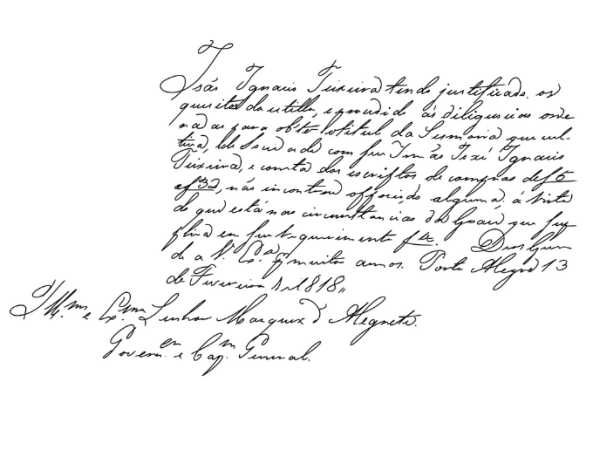 João Ignacio Teixeira tendo justificado os
quesitos do estillo, e procedido ás diligencias orde
nadas para obter o titulo da Sesmaria que cul
tiva, de Sociedade com seu Irmão José Ignacio
Teixeira, e consta dos escriptos de compras de f 5
a f 32, não incontro offonsido alguma, á vista
do que está nas circunstancias da Graça que sup
plica em seu requerimento f 2. Deos Guar
de a V. Ex.ª muitos annos. Porto Alegre 13
de Fevereiro de 1818
Ill.mo e Ex.mo Senhor Marquez d'Alegrete.
Govern.or e Cap.m General.